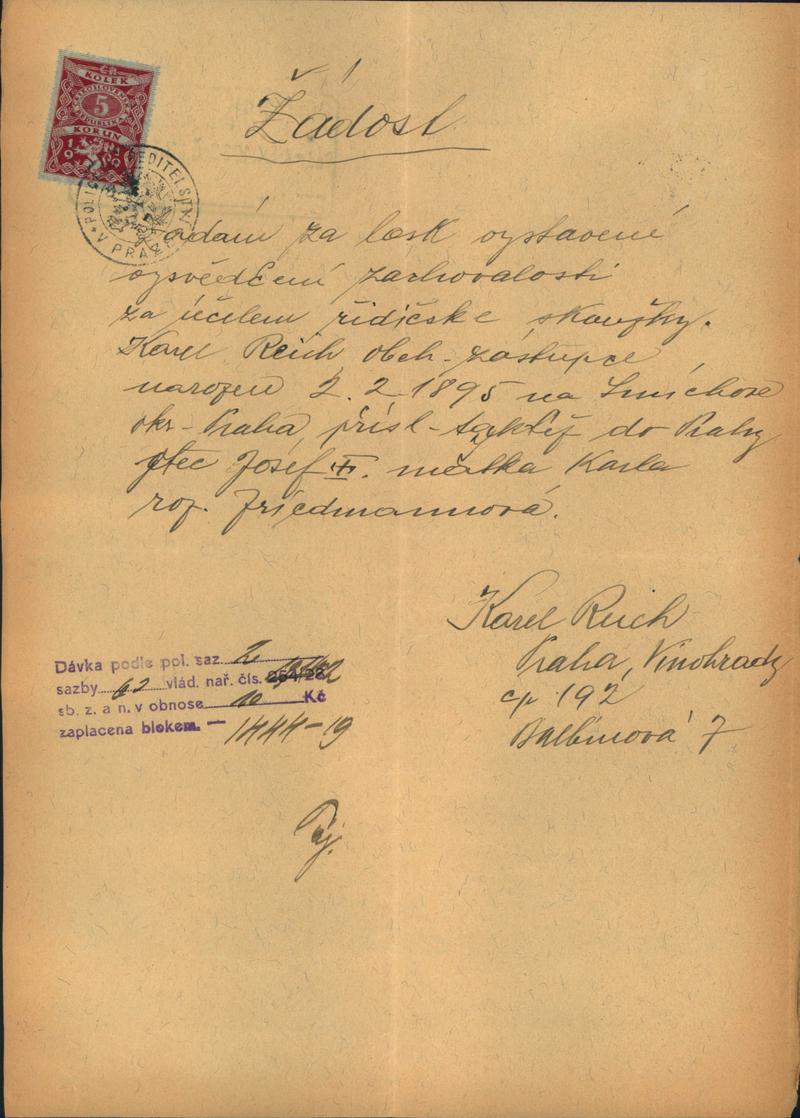 Žádost
ČR
KOLEK
ČESKOSLOVENSKÁ
REPUBLIKA
5
KORUN
POLICEJNÍ ŘEDITELSTVÍ V PRAZE
Žádám za lask vystavené
vysvědčení zachovalosti
za účelem řidičské skoužky.
Karel Reich, obch. zástupce
narozen 2. 2. 1895 na Smíchově
okr. Praha, přísl. taktéž do Prahy
Otec Josef matka Karla
roz. Friedmannová.
Karel Reich
Praha, Vinohrady
čp 192
Balbínova 7
Dávka podle pol. saz. 2
sazby 62 vlád. nař. čís.
sb. z. a n. v obnose 10 Kč
zaplacena blokem. —
1444-19